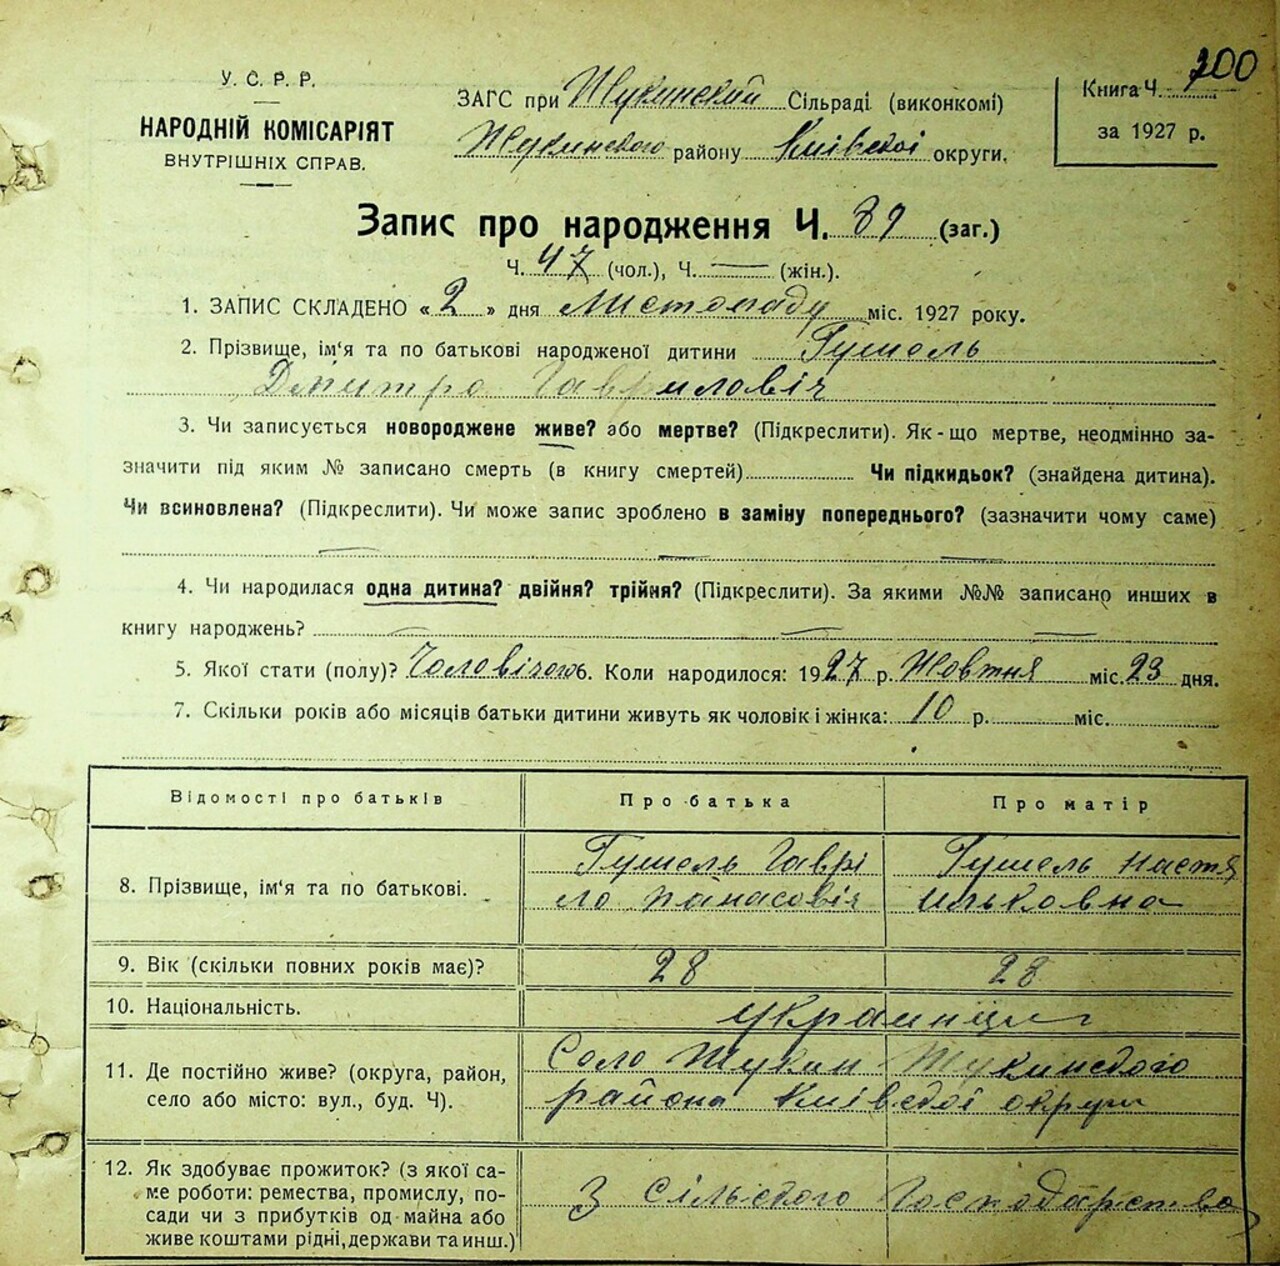 200
У. С. Р. Р.
НАРОДНІЙ КОМІСАРІЯТ
ВНУТРІШНІХ СПРАВ.
ЗАГС при Жукинский Сільраді (виконкомі)
Жукинского району Київскої округи.
Книга Ч.
за 1927 р.
Запис про народження Ч. 89 (заг.)
Ч. 47 (чол.), Ч. — (жін.).
1. ЗАПИС СКЛАДЕНО « 2 » дня Листопаду міс. 1927 року.
2. Прізвище, ім'я та по батькові народженої дитини Гушель
Дмитро Гаврилович
3. Чи записується новороджене живе? або мертве? (Підкреслити). Як-що мертве, неодмінно за-
значити під яким № записано смерть (в книгу смертей) Чи підкидьок? (знайдена дитина).
Чи всиновлена? (Підкреслити). Чи може запис зроблено в заміну попереднього? (зазначити чому саме)
4. Чи народилася одна дитина? двійня? трійня? (Підкреслити). За якими №№ записано инших в
книгу народжень?
5. Якої стати (полу)? Чоловічого 6. Коли народилося: 1927 р. Жовтня міс. 23 дня.
7. Скільки років або місяців батьки дитини живуть як чоловік і жінка: 10 р. міс.
Відомості про батьків Про батька Про матір
8. Прізвище, ім'я та по батькові. Гушель Гаврі Гушель Настя
ло Панасовіч Ильковна
9. Вік (скільки повних років має)? 28 28
10. Національність. Украинци
11. Де постійно живе? (округа, район, Соло Жукин Жукинского
село або місто: вул., буд. Ч). района Київскої округи
12. Як здобуває прожиток? (з якої са-
ме роботи: ремества, промислу, по- З сільского Господарства
сади чи з прибутків од майна або
живе коштами рідні, держави та инш.)